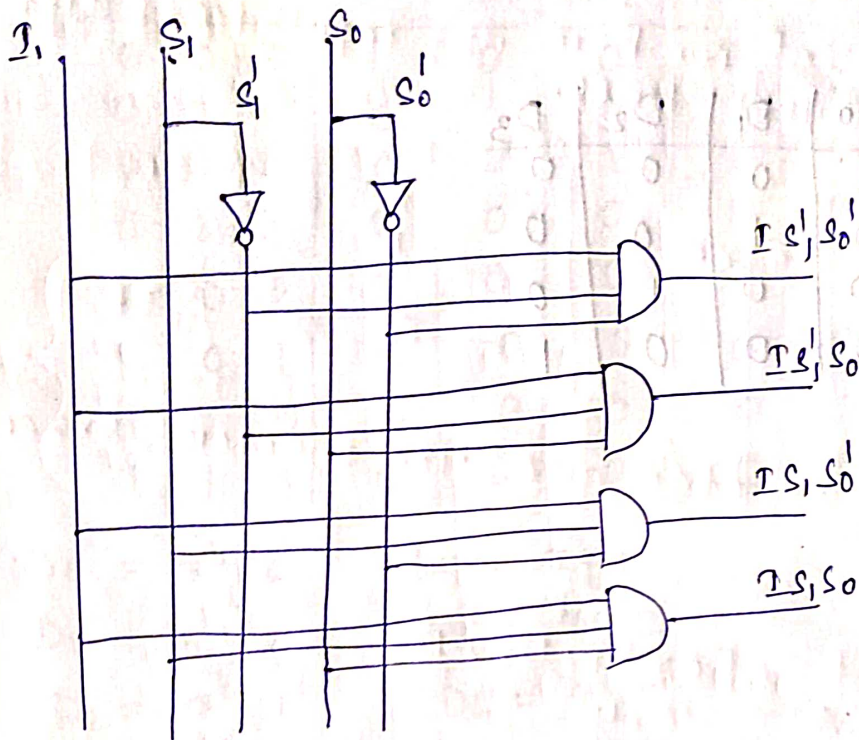 I₁ S₁ S₀
S₁' S₀'
I S₁' S₀'
I S₁' S₀
I S₁ S₀'
I S₁ S₀